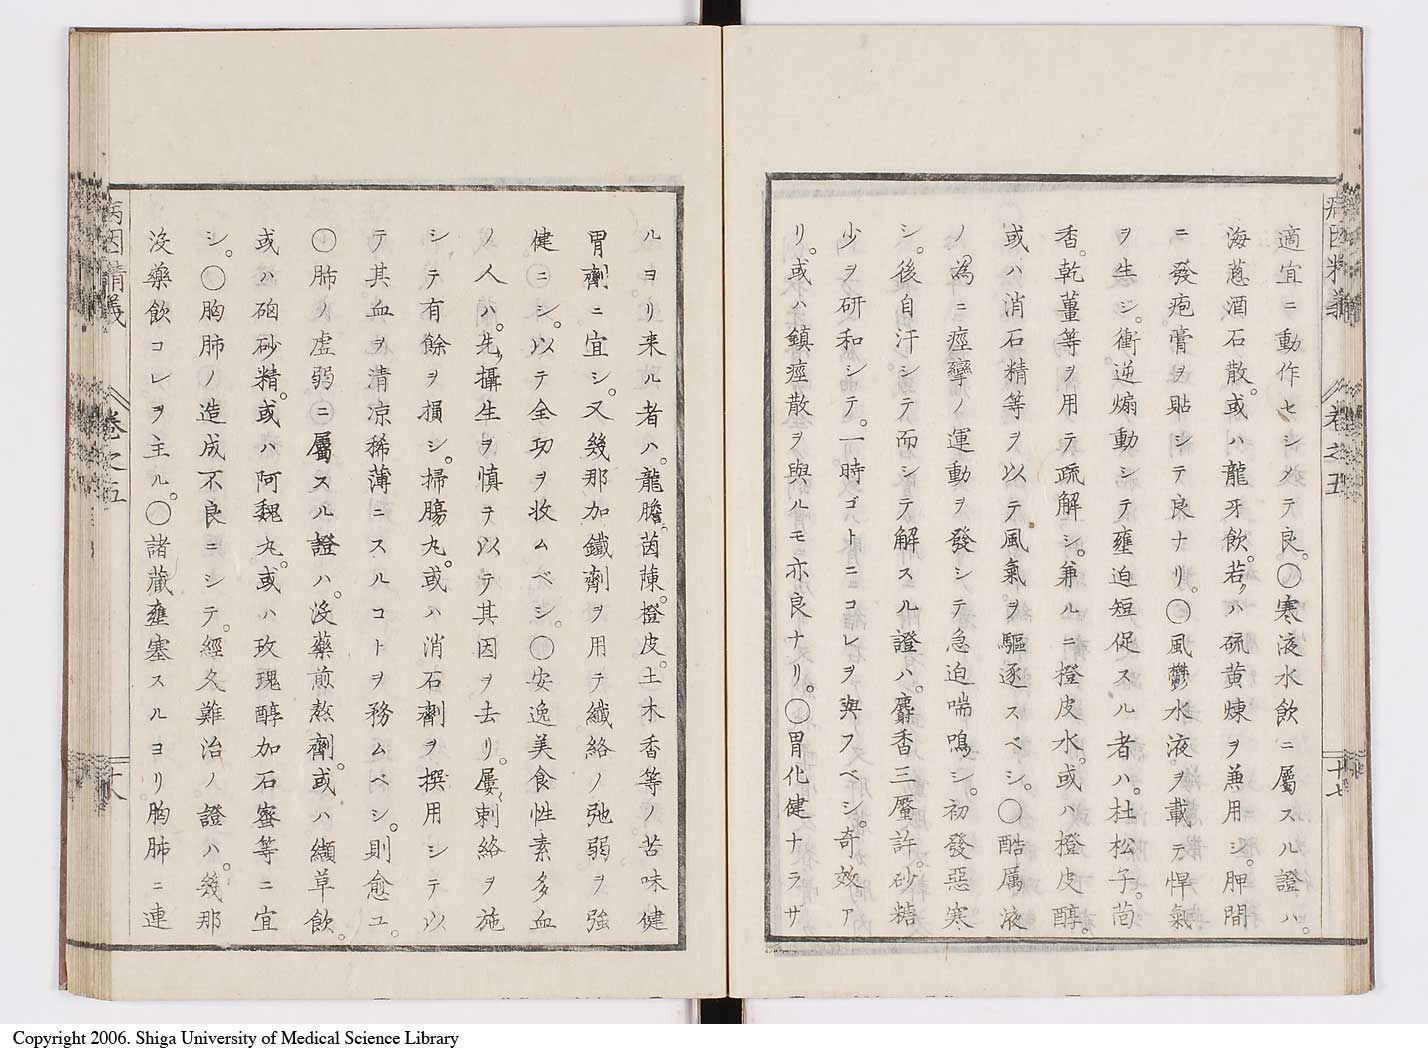 適宜ニ動作セシメテ良。〇寒液水飲ニ屬スル證ハ。
海蔥酒石散。或ハ龍牙飲。若クハ硫黄煉ヲ兼用シ。胛間
ニ發疱膏ヲ貼シテ良ナリ。〇風鬱水液。ヲ載テ悍氣
ヲ生ジ。衝逆煽動シテ壅迫短促スル者ハ。杜松子。茴
香。乾薑等ヲ用テ疏解シ。兼ルニ橙皮水。或ハ橙皮醇。
或ハ消石精等ヲ以テ風氣。ヲ驅逐スベシ。〇酷厲液
ノ為ニ痙攣ノ運動ヲ發シテ急迫喘鳴シ。初發惡寒
シ。後自汗シテ而シテ解スル證ハ。麝香三釐許。砂糖
少ヲ研和シテ。一時ゴトニコレヲ與フベシ。奇效ア
リ。或ハ鎮痙散ヲ與ルモ亦良ナリ。〇胃化健ナラザ
病因精義 卷之五 十七
ルヨリ来ル者ハ。龍膽。茵蔯。橙皮。土木香等ノ苦味健
胃劑ニ宜シ。又幾那加鐵劑ヲ用テ纖絡ノ弛弱ヲ強
健ニシ。以テ全功ヲ收ムベシ。〇安逸美食性素多血
ノ人ハ。先ヅ攝生ヲ慎テ以テ其因ヲ去リ。屢〻刺絡ヲ施
シテ有餘ヲ損シ。掃腸丸。或ハ消石劑ヲ撰用シテ以
テ其血ヲ清凉稀薄ニスルコトヲ務ムベシ。則愈ユ。
〇肺ノ虛弱ニ屬スル證ハ。沒藥煎熬劑。或ハ纈草飲。
或ハ硇砂精。或ハ阿魏丸。或ハ玫瑰醇加石蜜等ニ宜
シ。〇胸肺ノ造成不良ニシテ。經久難治ノ證ハ。幾那
沒藥飲コレヲ主ル。〇諸藏壅塞スルヨリ胸肺ニ連
病因精義 卷之五 十八
Copyright 2006. Shiga University of Medical Science Library